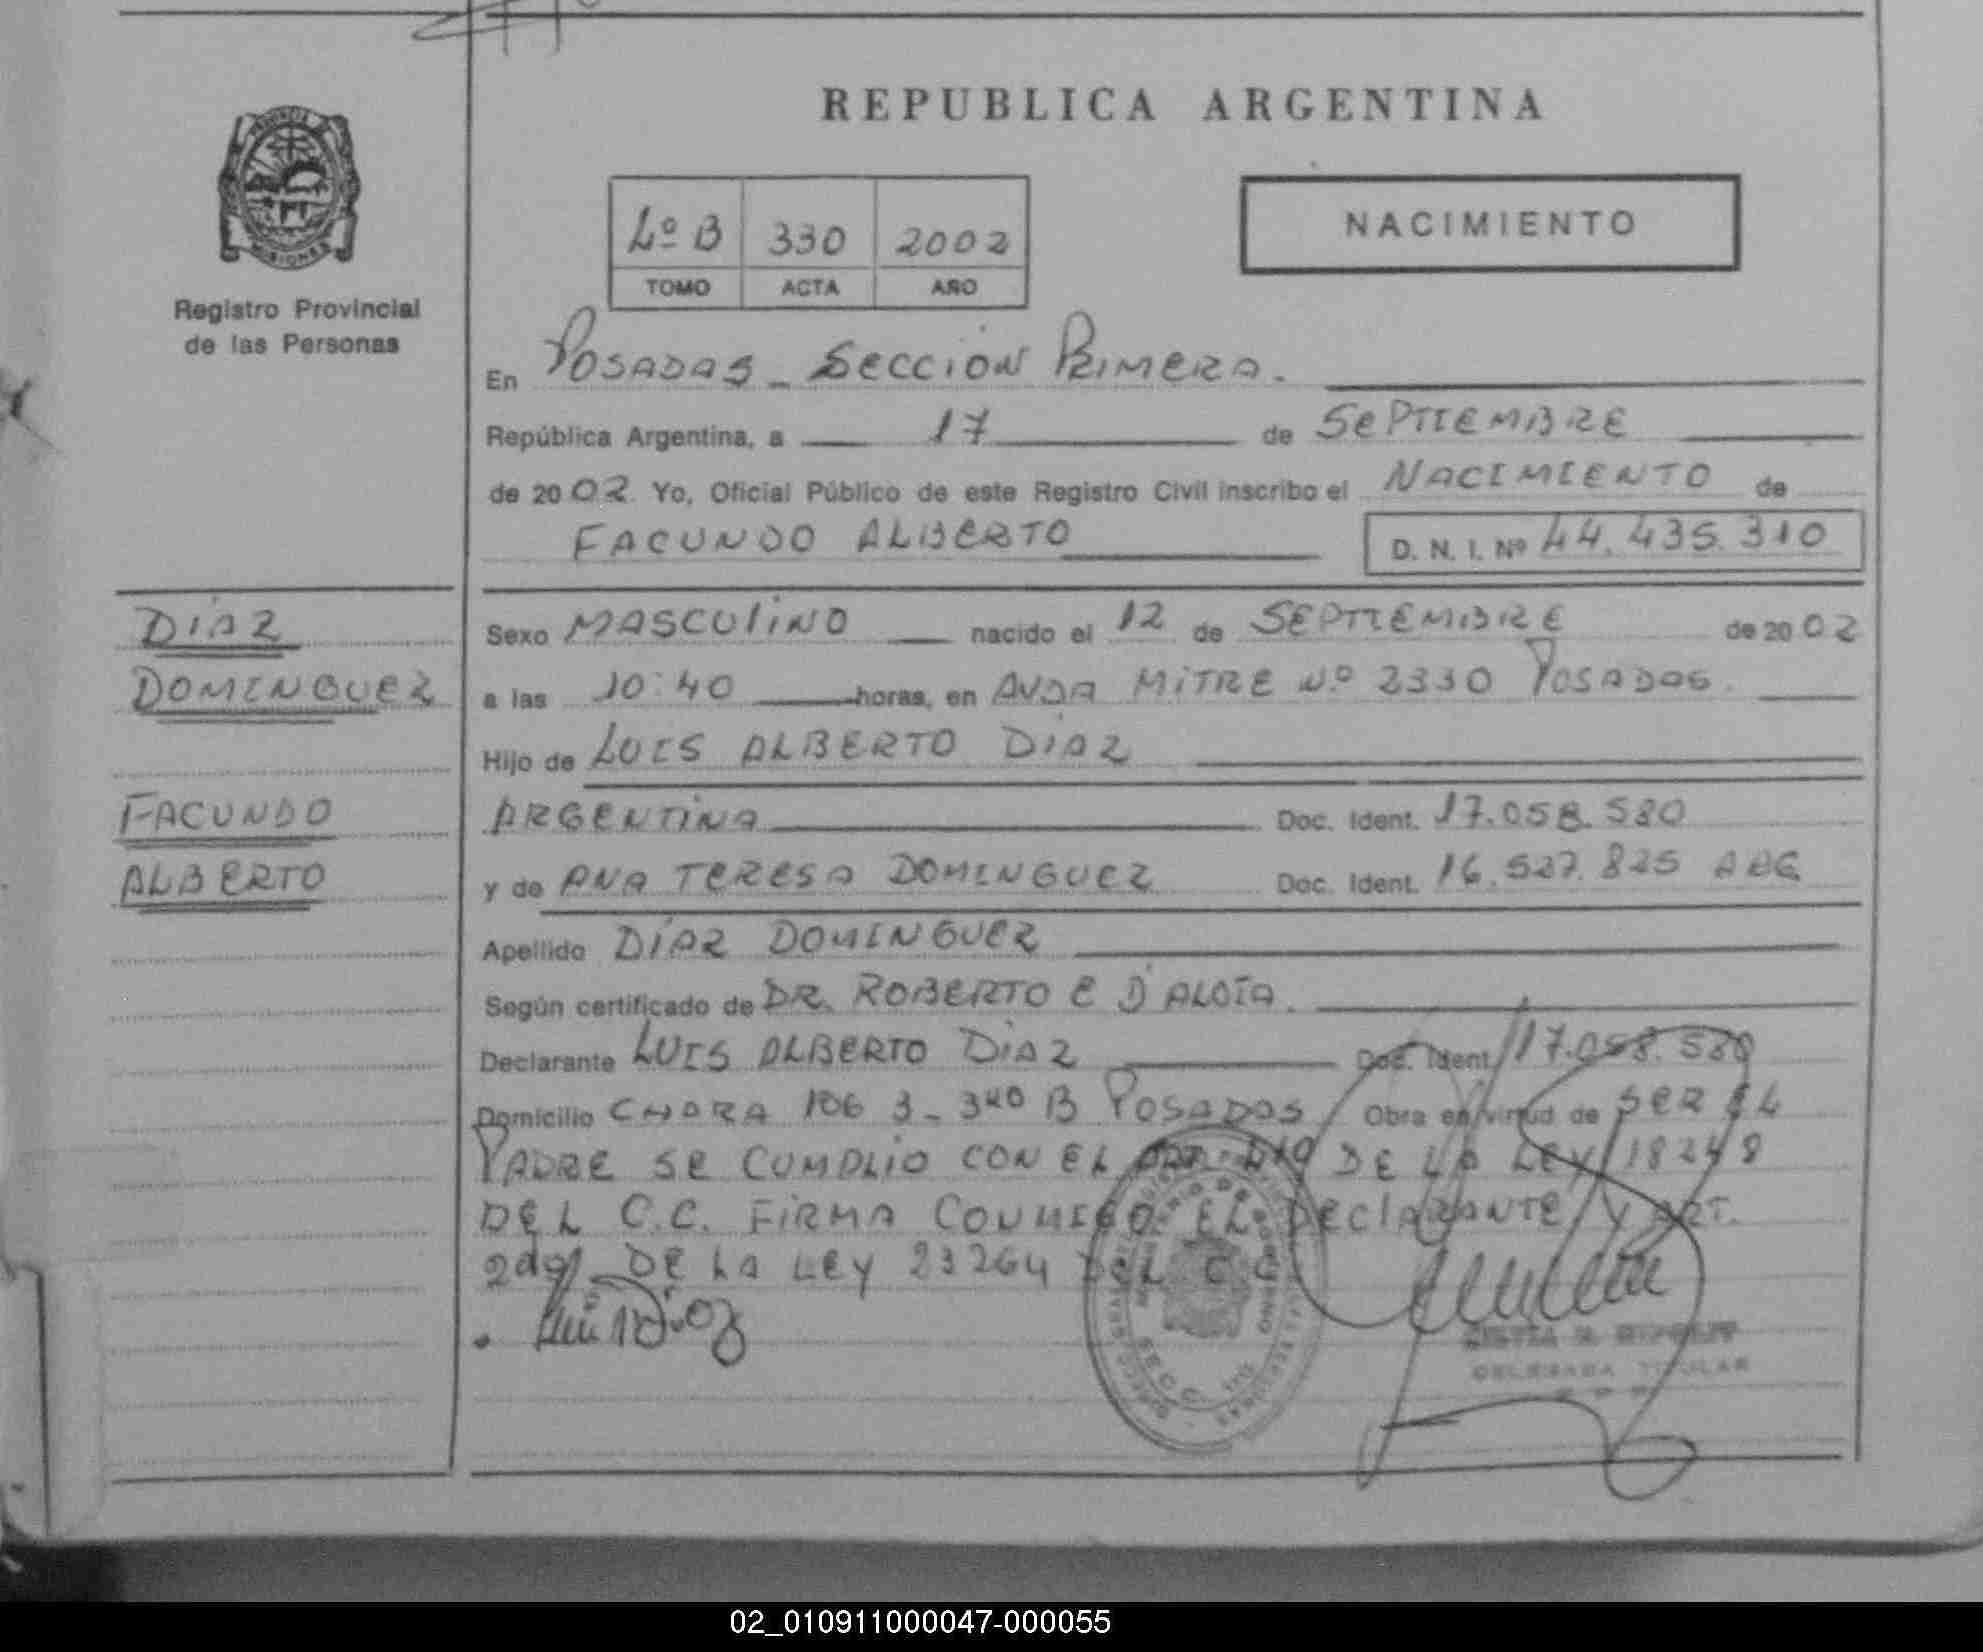 REPUBLICA ARGENTINA
NACIMIENTO
Lº B 330 2002
TOMO ACTA AÑO
Registro Provincial
de las Personas
En POSADAS - SECCION PRIMERA.
República Argentina, a 17 de SEPTIEMBRE
de 2002 Yo, Oficial Público de este Registro Civil inscribo el NACIMIENTO de
FACUNDO ALBERTO D. N. I. Nº 44.435.310
DIAZ
DOMINGUEZ
FACUNDO
ALBERTO
Sexo MASCULINO nacido el 12 de SEPTIEMBRE de 2002
a las 10:40 horas, en AVDA MITRE Nº 2330 POSADAS.
Hijo de LUIS ALBERTO DIAZ
ARGENTINA Doc. Ident. 17.058.580
y de ANA TERESA DOMINGUEZ Doc. Ident. 16.527.825 ARG
Apellido DÍAZ DOMINGUEZ
Según certificado de DR. ROBERTO E D'ALOIA.
Declarante LUIS ALBERTO DIAZ Doc. Ident. 17.058.580
Domicilio CHARA 106 POSADAS Obra en virtud de SER EL
PADRE SE CUMPLIO CON EL ART. DE LA LEY 18248
DEL C.C. FIRMA CONMIGO EL DECLARANTE Y ART.
DE LA LEY 23264 DEL C C
MINISTERIO DE GOBIERNO
DELEGADA TITULAR
02_010911000047-000055